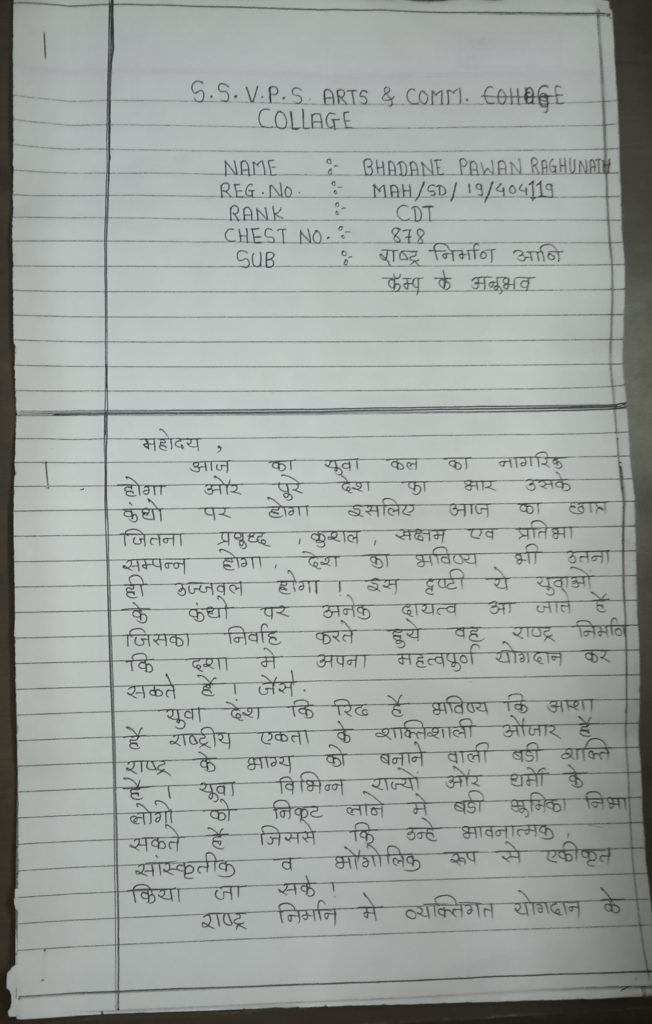 1
S.S.V.P.S. ARTS & COMM.
COLLAGE
NAME :- BHADANE PAWAN RAGHUNATH
REG.NO. :- MAH/SD/19/404119
RANK :- CDT
CHEST NO. :- 878
SUB :- राष्ट्र निर्माण आनि
कॅम्प के अनुभव
महोदय ,
आज का युवा कल का नागरिक
होगा और पुरे देश का भार उसके
कंधो पर होगा इसलिए आज का छात्र
जितना प्रबुध्द , कुशल , सक्षम एव प्रतिभा
सम्पन्न होगा , देश का भविष्य भी उतना
ही उज्जवल होगा ! इस दृष्टी ये युवाओं
के कंधो पर अनेक दायत्व आ जाते है
जिसका निर्वाह करते हुये वह राष्ट्र निर्मान
कि दशा मे अपना महत्वपुर्ण योगदान कर
सकते है ! जैसे.
युवा देश कि रिढ है भविष्य कि आशा
है राष्ट्रीय एकता के शक्तिशाली औजार है
राष्ट्र के भाग्य को बनाने वाली बडी शक्ति
है । युवा विभिन्न राज्यों और धर्मो के
लोगो को निकट लाने मे बडी भूमिका निभा
सकते है जिससे कि उन्हे भावनात्मक ,
सांस्कृतीक व भौगोलिक रूप से एकीकृत
किया जा सके !
राष्ट्र निर्मान मे व्यक्तिगत योगदान के